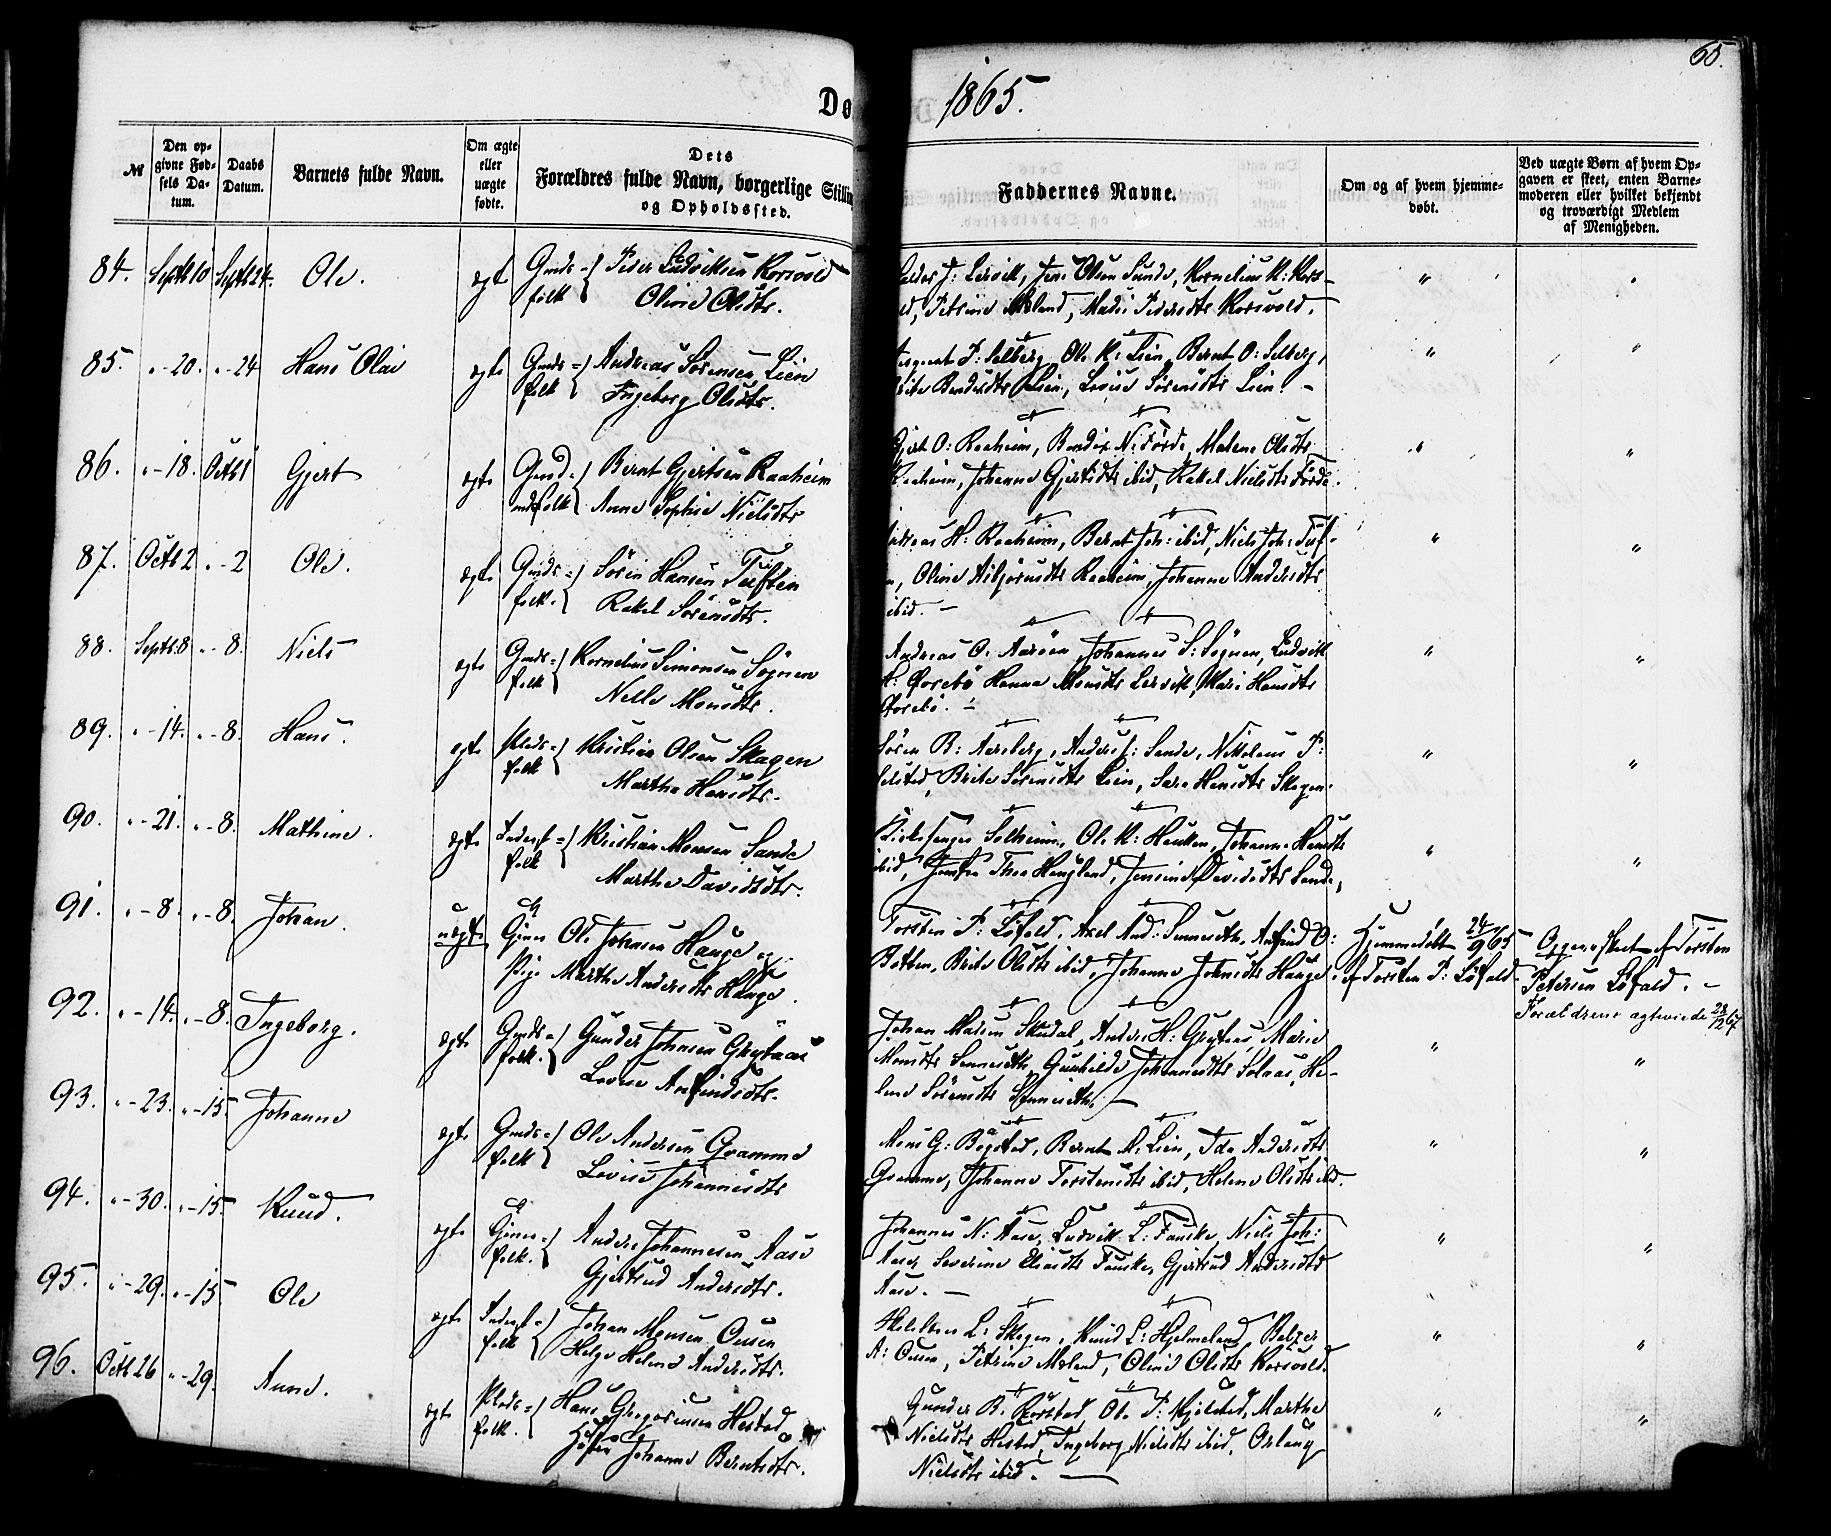 65.
Dø 1865.
№
Den op-
givne Fød-
sels Da-
tum.
Daabs
Datum.
Barnets fulde Navn.
Om ægte
eller
uægte
fødte.
Dets
Forældres fulde Navn, borgerlige Stillin
og Opholdssted.
Faddernes Navne.
Om og af hvem hjemme-
døbt.
Ved uægte Børn af hvem Op-
gaven er skeet, enten Barne-
moderen eller hvilket bekjendt
og troværdigt Medlem
af Menigheden.
84. Septb 10 Septb 24. Ole. ægt Gmds= folk { Peder Ludviksen Korsvold
Olivie Olsdtr.
Lervik, Jens Olsen Sunde, Kornelius K: Kors-
Petrine Møland, Madis Pedersdtr Korsvold.
" "
85. " - 20. " - 24 Hans Olai ægte Gmds= folk { Andreas Sørensen Lien
Ingeborg Olsdtr.
P: Selberg, Ole K: Lien, Bernt O: Selberg,
Lien, Lovise Sørensdtr Lien. -
" "
86. " - 18. Octb 1 Gjert ægte Gmd= folk { Bernt Gjertsen Raaheim
Anne Sophie Nielsdtr
Gjert O: Raaheim, N: Førde, Malene Olsdtr
Raaheim, Johanne Gjertsdtr ibid, Rakel Nielsdtr Førde.
" "
87. Octb 2 " - 2 Ole. ægte Gmds= folk. { Søren Hansen Tuften
Rakel Sørensdtr.
H: Raaheim, Bernt Joh: ibid, Niels Joh: Tuf-
n, Oline Asbjørnsdtr Raaheim, Johanne Andersdtr
ibid. -
" "
88. Septb. 8 " - 8. Niels ægte Gmds= folk { Kornelius Simonsen Sognen
Nelle Monsdtr.
Andreas O. Aarøen, Johannes S: Sognen, Ludvik
Hanna Monsdtr Lervik, Mari Hansdtr
" "
89. " - 14. " - 8. Hans. ægte Plads= folk { Kristian Olsen Skagen
Martha Hansdtr.
Søren B: Aarberg, Anders J: Sande, Nikolaus P:
Brite Sørensdtr Lien, Sara Hansdtr Skagen.
" "
90. " - 21. " - 8. Mathine. ægte Inderst= folk { Kristian Monsen Sande
Marthe Davidsdtr.
Kirkesanger Solheim, Ole K: Hauken, Johanne Hansdtr
ibid, Jomfru Thea Haugland, Jensine Davidsdtr Sande,
" "
91. " - 8. " - 8. Johan. uægte Ole Johnsen Hauge og
Pige Marthe Andersdtr Hauge.
Torsten P: Løfald, Axel And: Senneseth, Anfind O:
Botten, Brite Olsdtr ibid, Johanne Johnsdtr Hauge.
Hjemmedøbt 24/9 65
af Torsten P: Løfald.
Opgave skeet af Torsten
Petersen Løfald. -
Forældrene ægteviede 28/12 67
92. " - 14. " - 8. Ingeborg. ægte Gmds= folk. { Gunder Johnsen Grytaas
Lovise Anfindsdtr.
Johan Madsen Skudal, Anders H: Grytaas, Marie
Monsdtr Senneseth, Gunhilde Johannesdtr Solaas, He-
lene Sørensdtr Senneseth. -
" "
93. " - 23. " - 15. Johanne ægte Gmds= folk { Ole Andersen Gramme
Lovise Johannesdtr
Mons G: Bogstad, Bernt M: Lien, Ida Andersdtr
Gramme, Johanne Torstensdtr ibid, Helene Olsdtr ibid.
" "
94. " - 30. " - 15. Knud. ægte folk. { Anders Johannesen Aase
Gjertrud Andersdtr.
Johannes N: Aase, Ludvik L: Fauske, Niels Joh:
Aase, Severine Eliasdtr Fauske, Gjertrud Andersdtr
Aase. -
" "
95. " - 29. " - 15 Ole ægte Inderst= folk { Johan Monsen Ousen
Helge Helene Andersdtr.
L: Skagen, Knud L: Hjelmeland,
A: Ousen, Petrine Møland, Oline Olsdtr Korsvold.
" "
96. Octb 26 " - 29. Anne. ægte Plads= folk. { Hans Gregoriusen Hestad
Johanne Berntsdtr.
Gunder B: Rørstad, Ole P: Kjelstad, Marthe
Nielsdtr Hestad, Ingeborg Nielsdtr ibid,
Nielsdtr ibid. -
" "